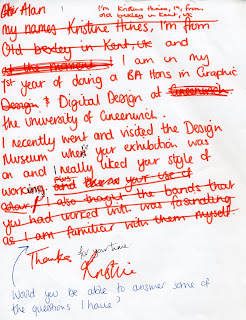 Alan
I'm Kristine Hines, 19, from
old bexley in Kent, UK
my names Kristine Hines, I'm from
Old bexley in Kent, UK and
at the moment I am in my
1st year of doing a BA Hons in Graphic
Design & Digital Design at Greenwich
the University of Greenwich.
I recently went and visited the Design
Museum when your exhibition was
on and I really liked your style of
working. plus and use of
I also the bands that
you had worked with was fasinating
as I am familiar with them myself.
Thanks for your time
Kristine
Would you be able to answer some of
the questions I have?